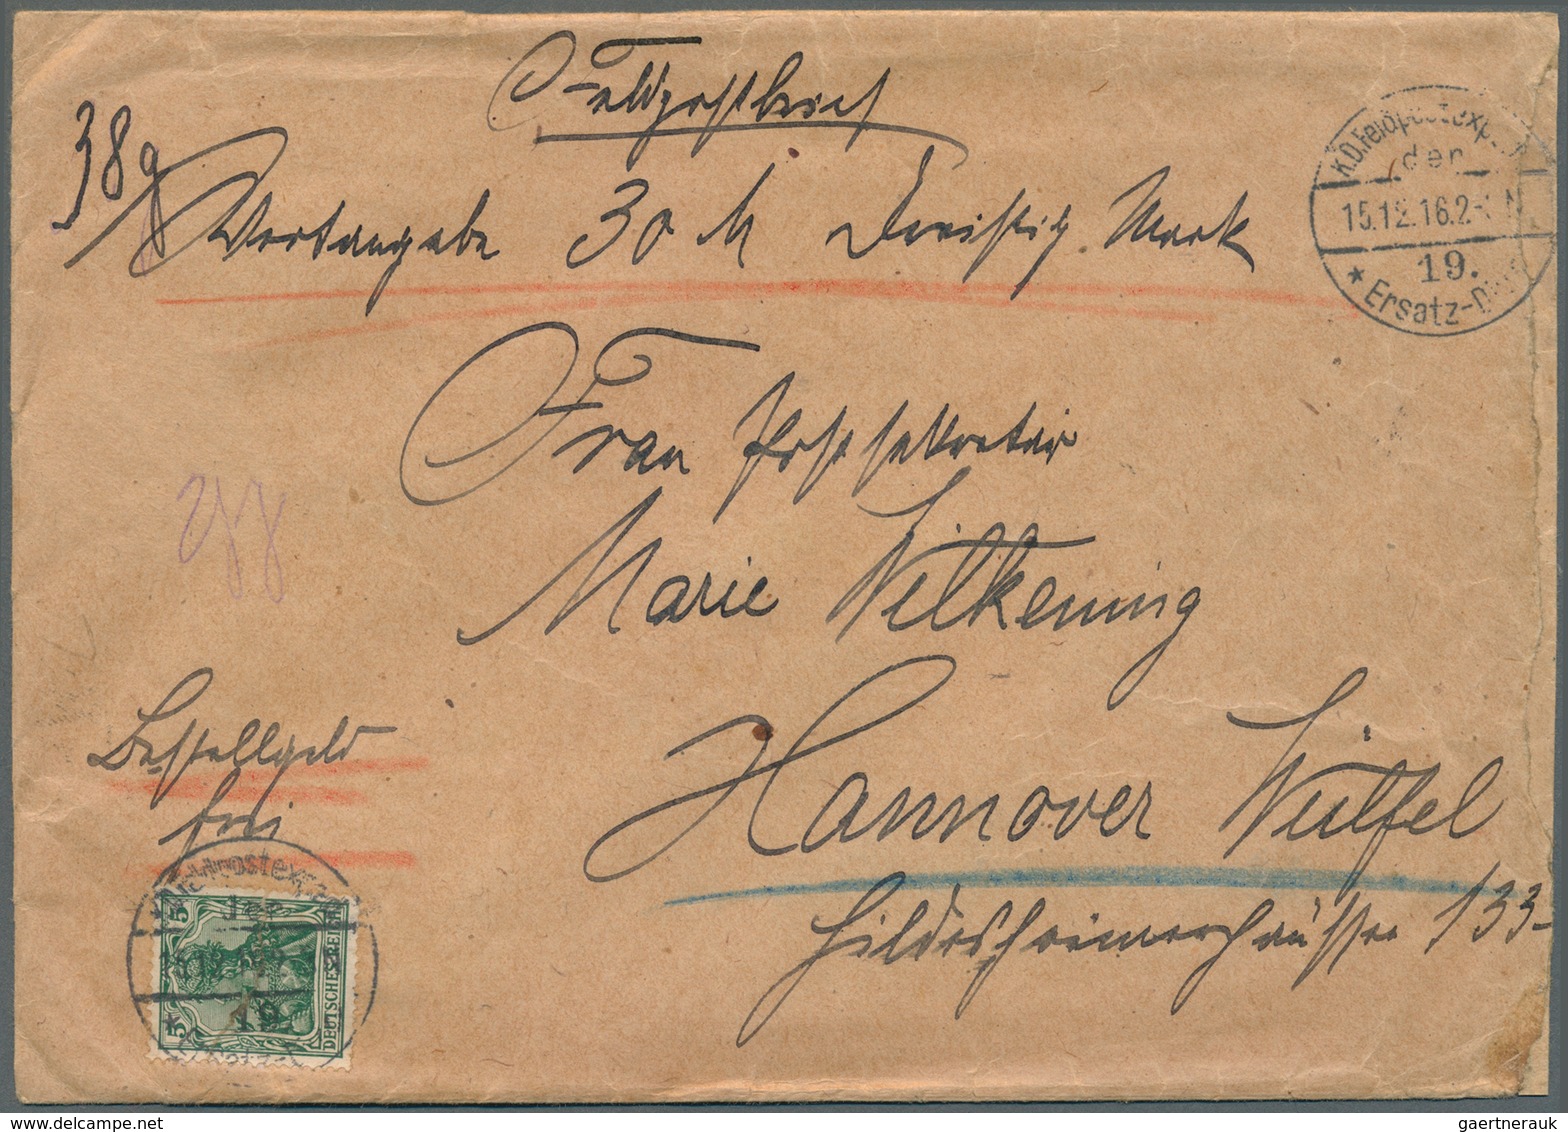 Feldpostbrief
38 g
Wertangabe 30 M Dreissig Mark
K.D. Feldpostexp.
der
15.12.16.2-
19.
* Ersatz-Div.
Frau Postsekretär
Marie Wilkening
Bestellgeld
frei
Hannover Wülfel
Hildesheimerchaussee 133
5
DEUTSCHES REICH
5
der
19
gaertnerauk